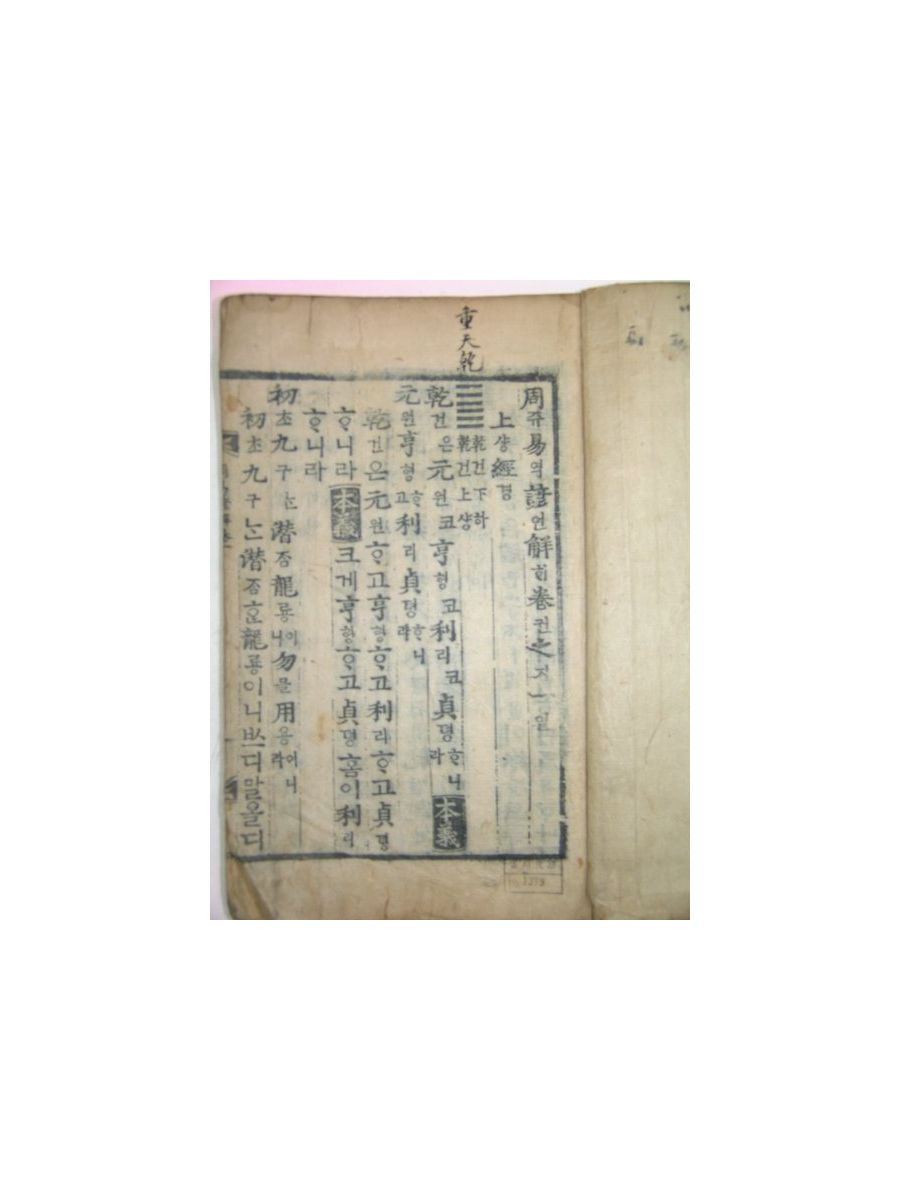 重天乾
周쥬易역諺언解ᄒᆡ卷권之지一일
上샹經경
乾건下하
乾건上샹
乾건은元원코亨형코利리코貞뎡ᄒᆞ니라本義
元원亨형ᄒᆞ고利리貞뎡ᄒᆞ니라
乾건은元원ᄒᆞ고亨형ᄒᆞ고利리ᄒᆞ고貞뎡
ᄒᆞ니라本義크게亨형ᄒᆞ고貞뎡홈이利리
ᄒᆞ니라
初초九구ᄂᆞᆫ潛ᄌᆞᆷ龍룡이니勿믈用용이니라
初초九구ᄂᆞᆫ潛ᄌᆞᆷᄒᆞᆫ龍룡이니ᄡᅳ디말올디